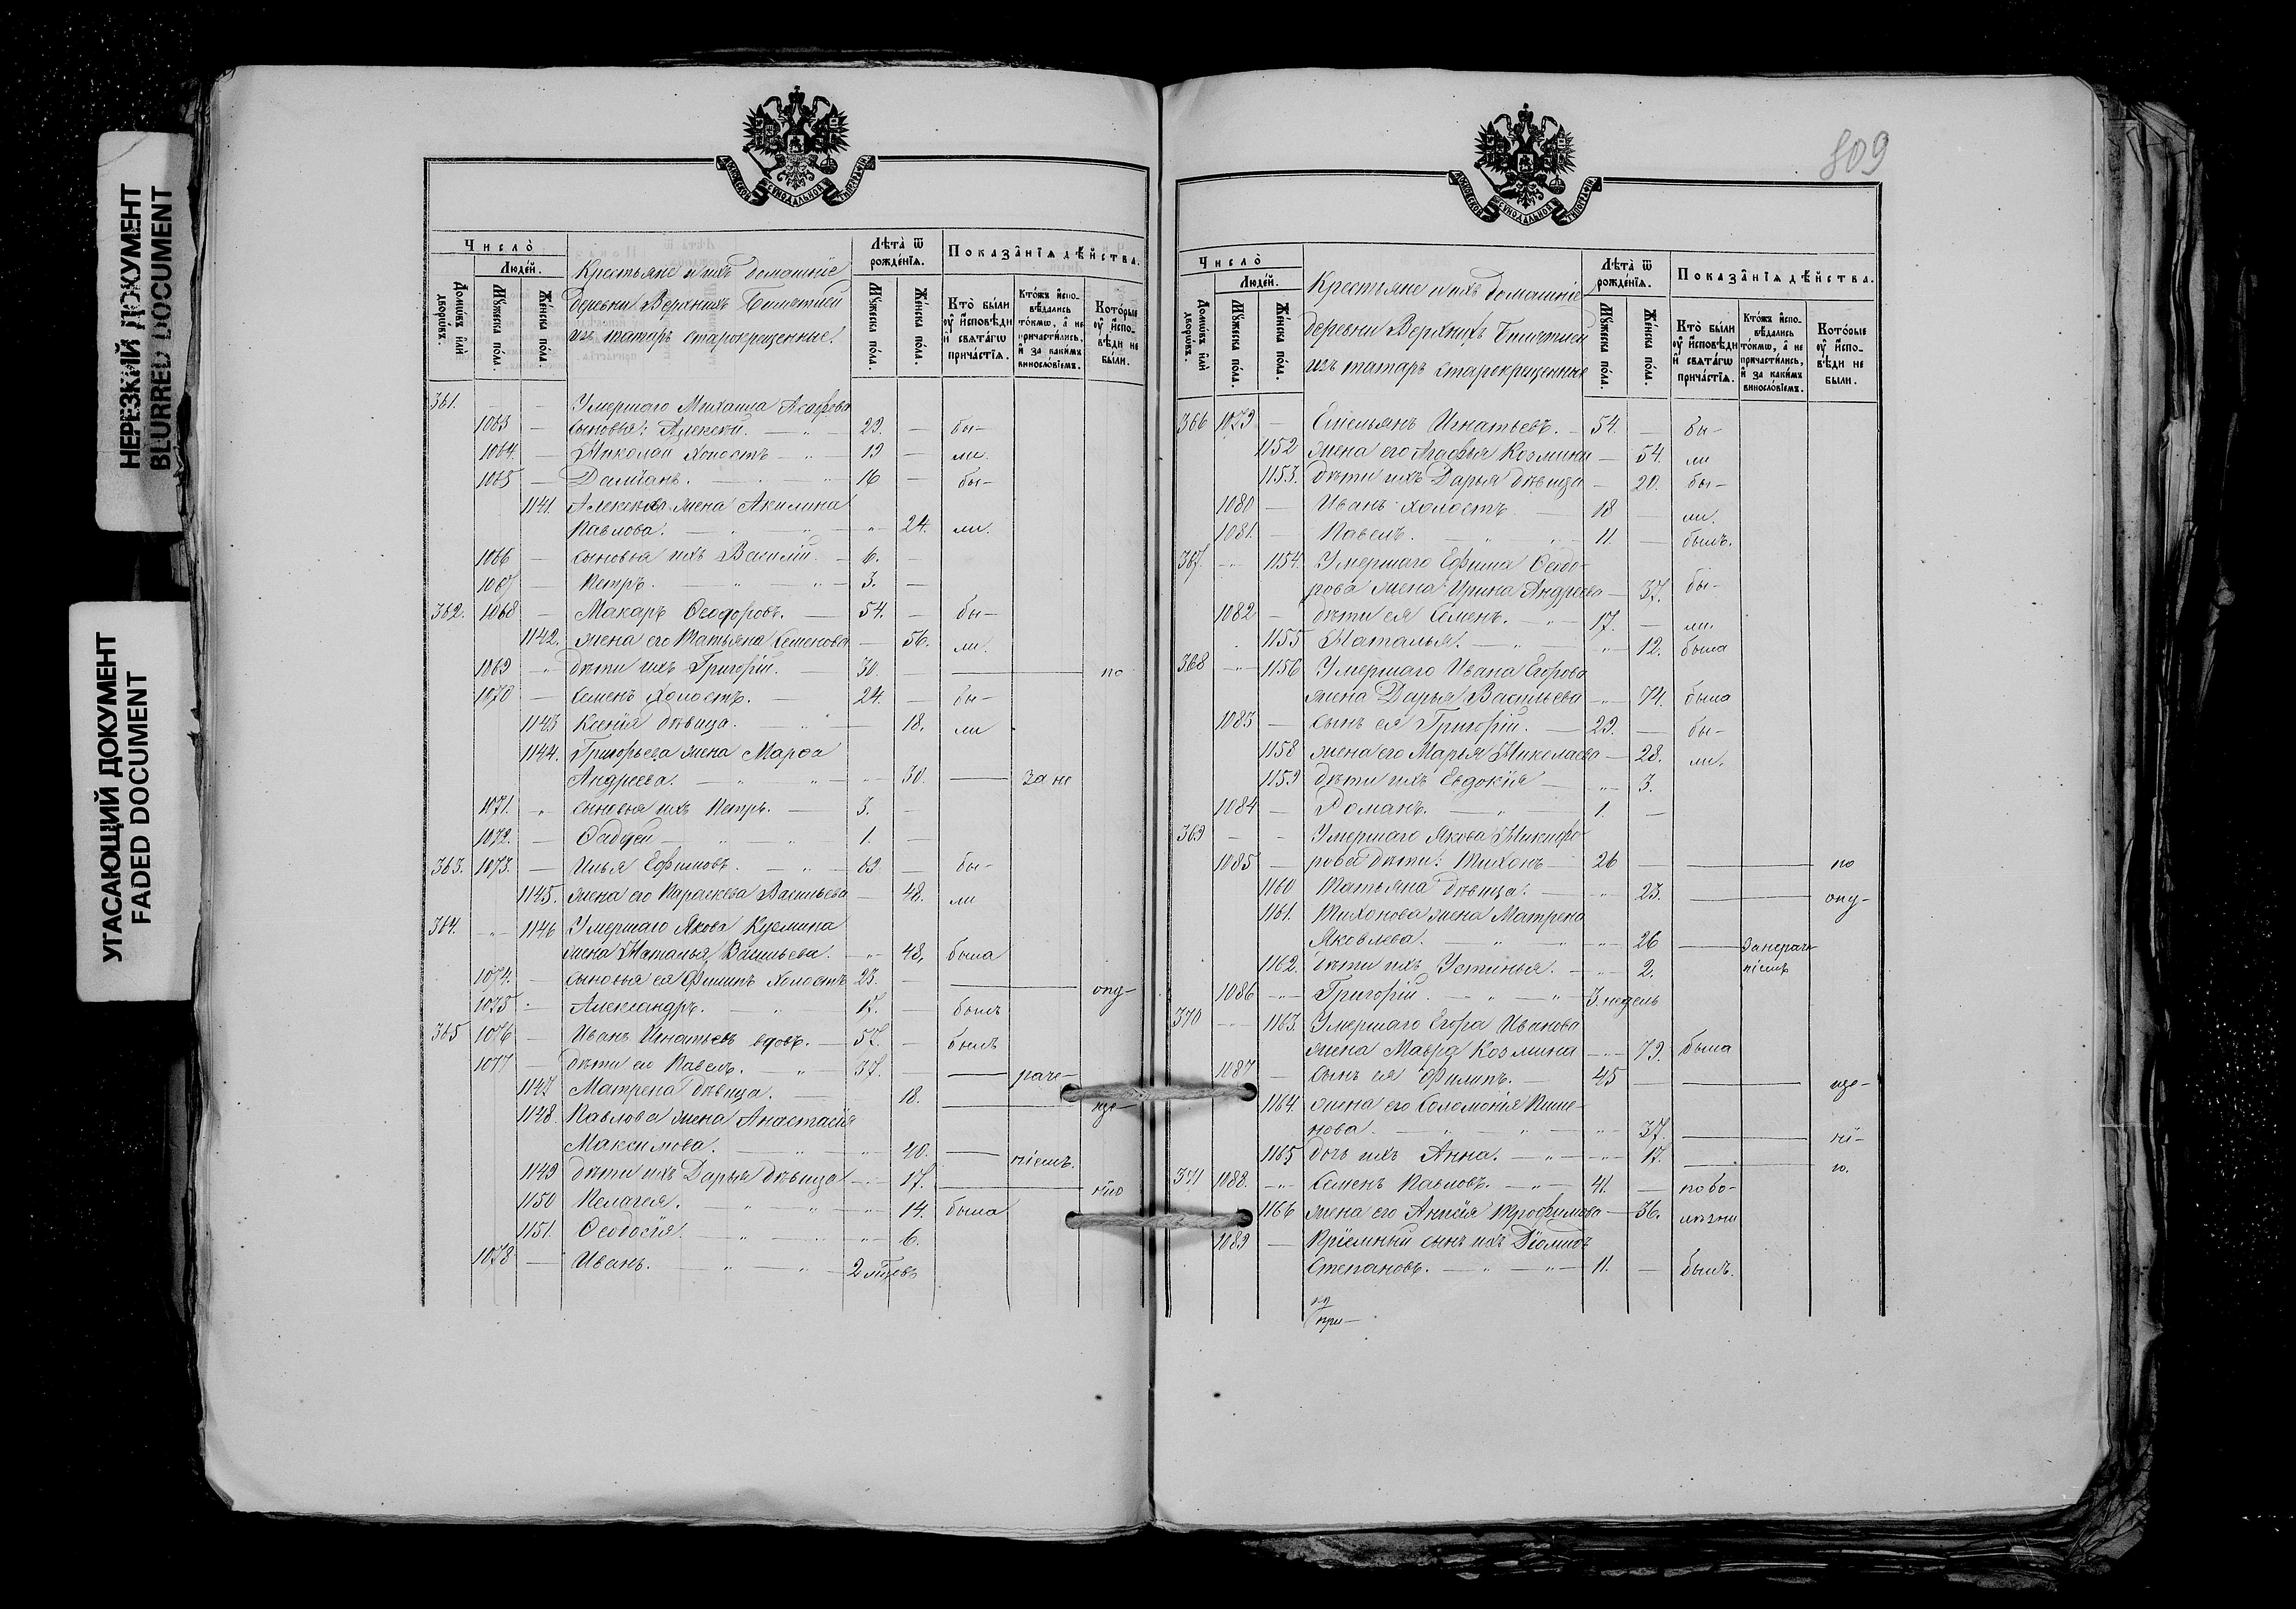 НЕРЕЗКИЙ ДОКУМЕНТ
BLURRED DOCUMENT
УГАСАЮЩИЙ ДОКУМЕНТ
FADED DOCUMENT
МОСКОВСКОЙ СѴНОДАЛЬНОЙ ТИПОГРАФІИ.
Число̀
Людей.
Домѡвъ илѝ дворѡвъ.
Мꙋжеска пола.
Женска пола.
Крестьяне и ихъ домашніе
деревни Верхнихъ
изъ татаръ старокрещенные.
Лѣта̀ ѿ рожденїѧ.
Мꙋжеска пола.
Женска пола.
Показанїѧ дѣйства.
Кто̀ были оу҆ и҆сповѣди и҆ свѧтагѡ причастїѧ.
Ктожъ и҆сповѣдались токмѡ, а҆ не причастились, и҆ за какимъ винословїемъ.
Которые оу҆ и҆сповѣди не были.
361. — — Умершаго Михаила
1063 — сыновья: Алексѣй. — 29. — бы-
1064. — Николай холостъ — 19 — ли.
1065 — Даміанъ. — 16 — бы-
1141. Алексѣя жена Акилина
Павлова. — 24. ли.
1066 — сыновья ихъ Василій. — 6. —
1067 — Петръ. — 3. —
362. 1068 — Макаръ Ѳеодоровъ. — 54. — бы-
1142. жена его Татьяна Семенова — 56. ли.
1069 — дѣти ихъ Григорій. 30. — по
1070 — Семенъ холостъ. — 24. — бы-
1143 Ксенія дѣвица. — 18. ли
1144. Григорьева жена Марѳа
Андреева. — 30. — за не
1071. — сыновья ихъ Петръ. — 3. —
1072. — Ѳаддей — 1. —
363. 1073. — Илья Ефимовъ. — 63. — бы-
1145. жена его Параскева Васильева — 48. ли
364. — 1146 Умершаго Якова Кузмина
жена Наталья Васильева. — 48. была
1074. — сыновья ея Филипъ холостъ 23. — опу-
1075 — Александръ. — 17. — былъ
365 1076 — Иванъ Игнатьевъ вдовъ. — 57. — былъ
1077 — дѣти его Павелъ. — 37. — раче-
1147 Матрена дѣвица. — 18. — ще-
1148. Павлова жена Анастасія
Максимова. — 40. — ніемъ.
1149 дѣти ихъ Дарья дѣвица — 17. — нію
1150 Пелагея. — 14. была
1151. Ѳеодосія. — 6.
1078 — Иванъ. — 2 мѣсяцовъ
809
МОСКОВСКОЙ СѴНОДАЛЬНОЙ ТИПОГРАФІИ.
Число̀
Людей.
Домѡвъ илѝ дворѡвъ.
Мꙋжеска пола.
Женска пола.
Крестьяне и ихъ домашніе
деревни Верхнихъ
изъ татаръ старокрещенные
Лѣта̀ ѿ рожденїѧ.
Мꙋжеска пола.
Женска пола.
Показанїѧ дѣйства.
Кто̀ были оу҆ и҆сповѣди и҆ свѧтагѡ причастїѧ.
Ктожъ и҆сповѣдались токмѡ, а҆ не причастились, и҆ за какимъ винословїемъ.
Которые оу҆ и҆сповѣди не были.
366 1079 — Емельянъ Игнатьевъ. — 54. — бы-
1152 жена его Агафья Козмина — 54. ли
1153. дѣти ихъ Дарья дѣвица — 20. бы-
1080 — Иванъ холостъ — 18 — ли.
1081. — Павелъ. — 11. — былъ.
367. — 1154. Умершаго Ефима Ѳедо-
рова жена Ирина Андреева — 37. бы-
1082 — дѣти ея Семенъ. — 17. — ли.
1155 Наталья. — 12. была
368 — 1156 Умершаго Ивана Егорова
жена Дарья Васильева — 74. была
1083 — сынъ ея Григорій. — 29. — бы-
1158 жена его Марья Николаева — 28. ли.
1159 дѣти ихъ Евдокія — 3.
1084 — Романъ. — 1. —
369 — — Умершаго Якова Никифо-
1085 — рова дѣти: Тихонъ — 26 — по
1160 Татьяна дѣвица. — 23. — опу-
1161. Тихонова жена Матрена
Яковлева. — 26 — за нераче
1162. дѣти ихъ Устинья. — 2. ніемъ
1086 — Григорій. — 3. недѣль
370 — 1163. Умершаго Егора Иванова
жена Мавра Козмина — 79. была
1087 — сынъ ея Филипъ. — 45 — ще-
1164. жена его Соломонія Пиме-
нова. — 37. — ні-
1165 дочь ихъ Анна. — 17. — ю.
371 1088. — Семенъ Павловъ. — 41. — по бо-
1166 жена его Анисія Трофимова — 36. лѣзни
1089 — Пріемный сынъ ихъ Діомидъ
Степановъ. — 11. — былъ.
при-